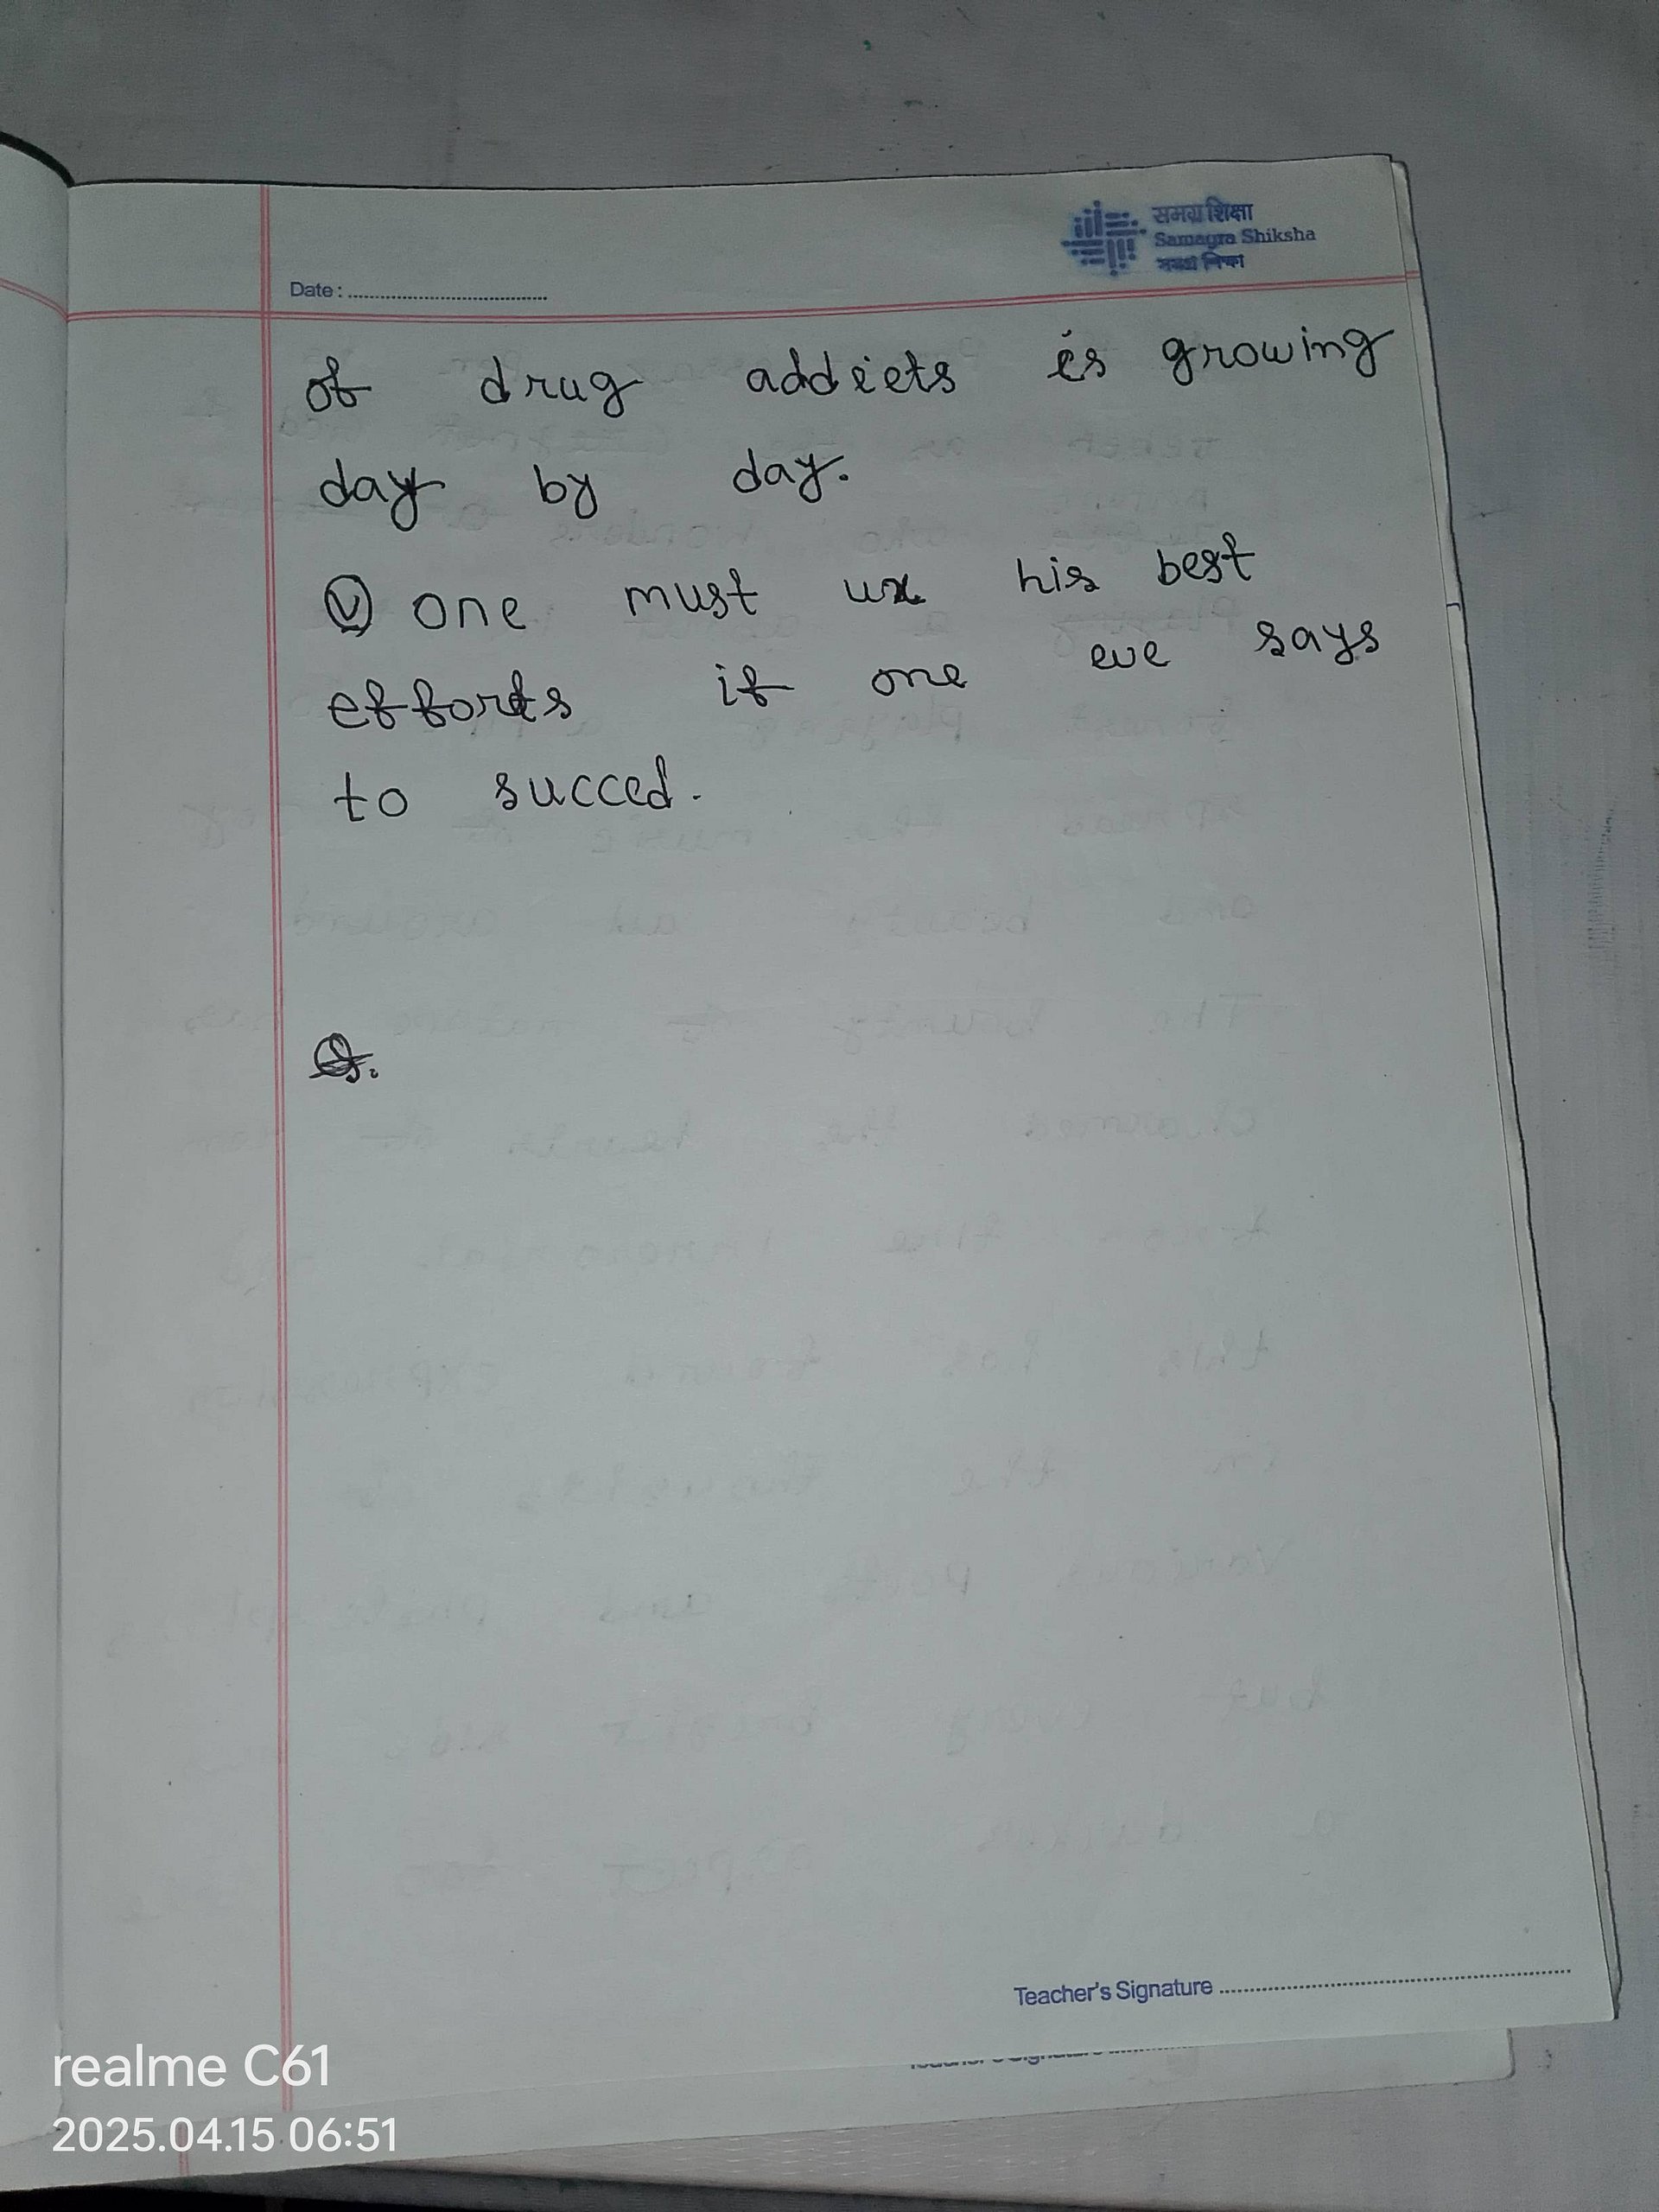 समग्र शिक्षा
Samagra Shiksha
Date :
of drug addicts is growing
day by day.
(v) one must ux his best
efforts if one eve says
to succed.
Q.
Teacher's Signature
realme C61
2025.04.15 06:51